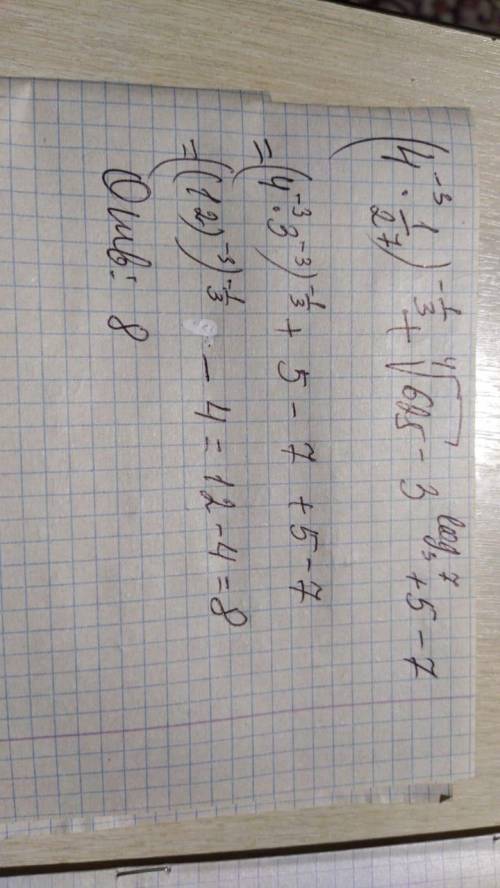 (4⁻³ · 1/27)^(-1/3) + ⁴√625 - 3^(log₃7) + 5 - 7
= (4⁻³ · 3⁻³)^(-1/3) + 5 - 7 + 5 - 7
= ((12)⁻³)^(-1/3) - 4 = 12 - 4 = 8
Ответ: 8